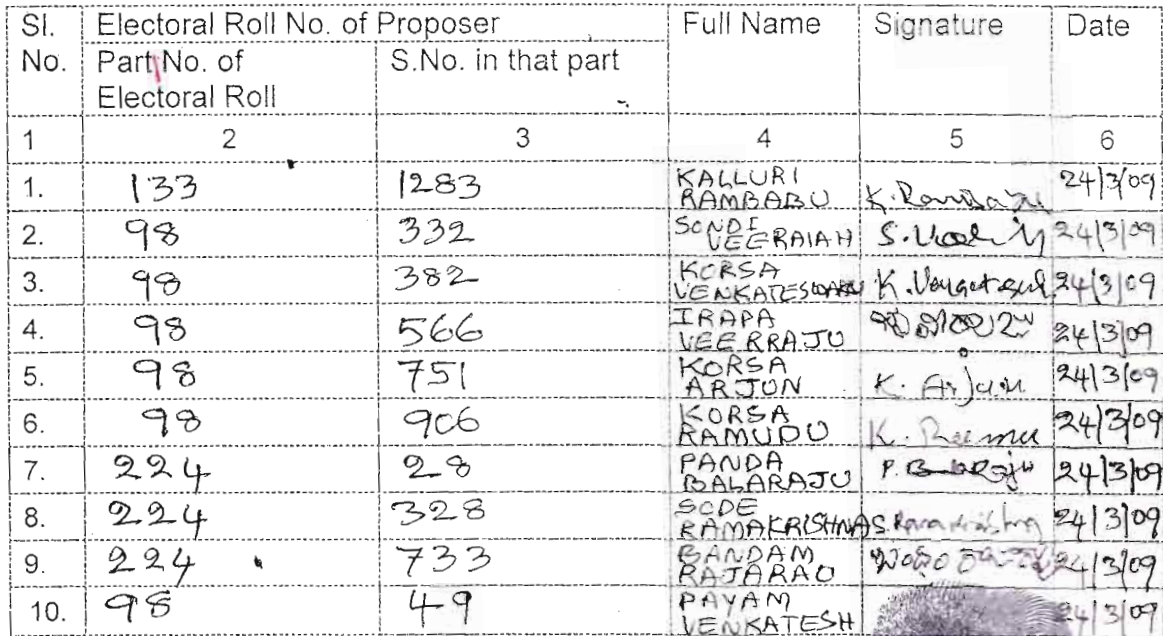 Sl. Electoral Roll No. of Proposer Full Name Signature Date
No. Part No. of S.No. in that part
Electoral Roll
1 2 3 4 5 6
1. 133 1283 KALLURI RAMBABU K. Rambabu 24/3/09
2. 98 332 SONDI VEERAIAH S. 24/3/09
3. 98 382 KORSA VENKATESWARLU K. 24/3/09
4. 98 566 IRAPA VEERRAJU 24/3/09
5. 98 751 KORSA ARJUN K. Arjun 24/3/09
6. 98 906 KORSA RAMUDU K. 24/3/09
7. 224 28 PANDA BALARAJU P. 24/3/09
8. 224 328 SODE RAMAKRISHNA S. Ramakrishna 24/3/09
9. 224 733 BANDAM RAJARAO బందం 24/3/09
10. 98 49 PAYAM VENKATESH 24/3/09